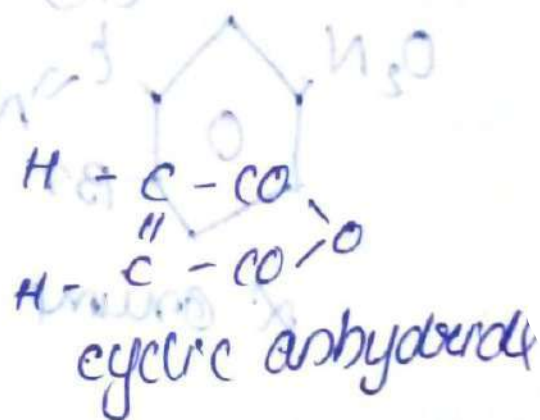 H - C - CO
"
O
H - C - CO
cyclic anhydride